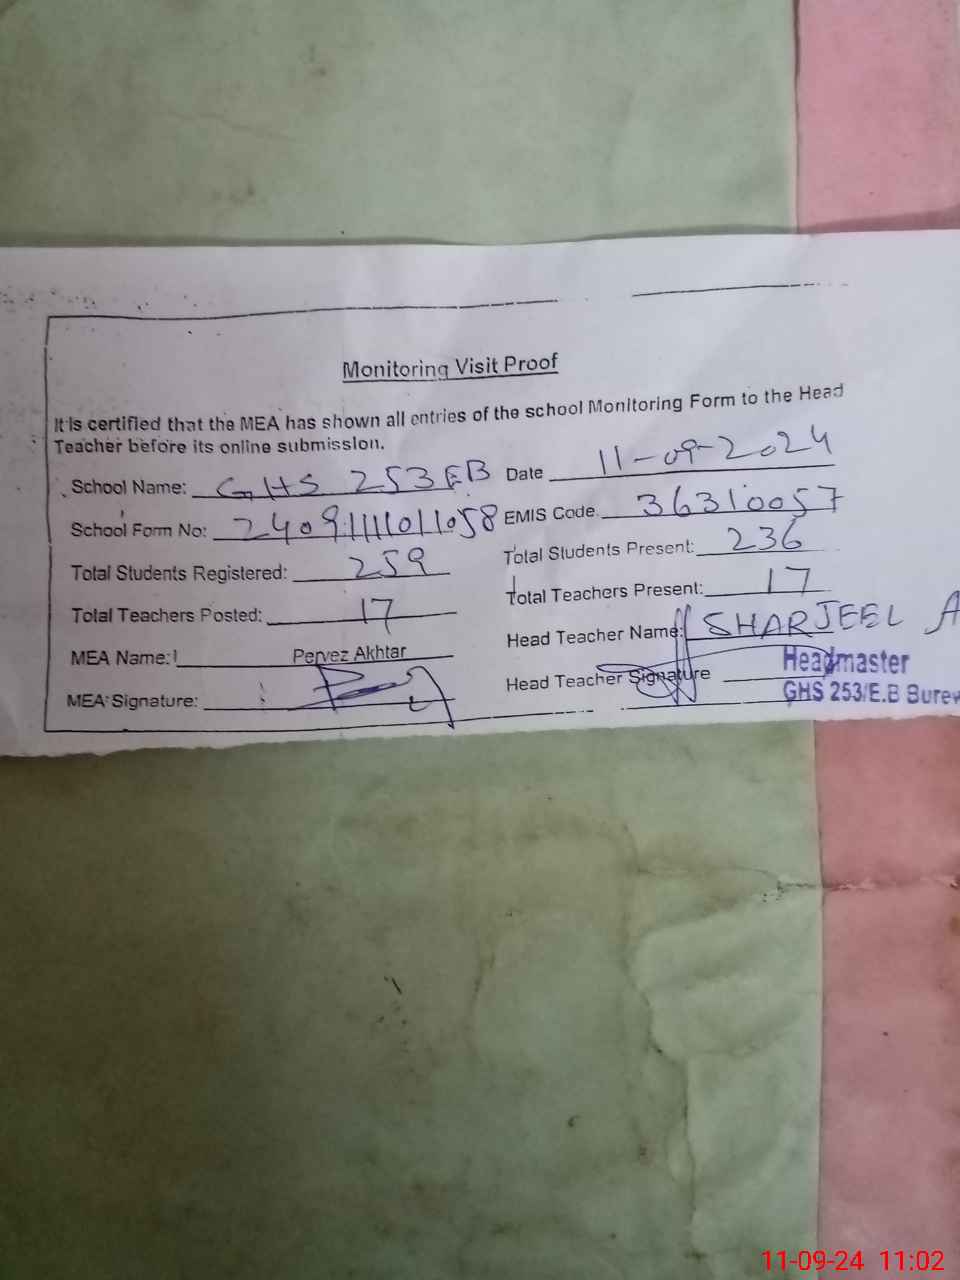 Monitoring Visit Proof
It is certified that the MEA has shown all entries of the school Monitoring Form to the Head
Teacher before its online submission.
School Name: GHS 253 EB Date 11-09-2024
School Form No: EMIS Code. 36310057
Total Students Registered: 259 Total Students Present: 236
Total Teachers Posted: 17 Total Teachers Present: 17
MEA Name: Pervez Akhtar Head Teacher Name: SHARJEEL A
MEA Signature: Head Teacher Signature
Headmaster
GHS 253/E.B Burew
11-09-24 11:02